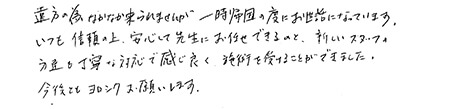 遠方の為なかなか来られませんが 一時帰国の度にお世話になっています。
いつも信頼の上、安心して先生にお任せできるのと、新しいスタッフの
方達も丁寧な対応で感じ良く、施術を受けることができました。
今後ともヨロシクお願いします。